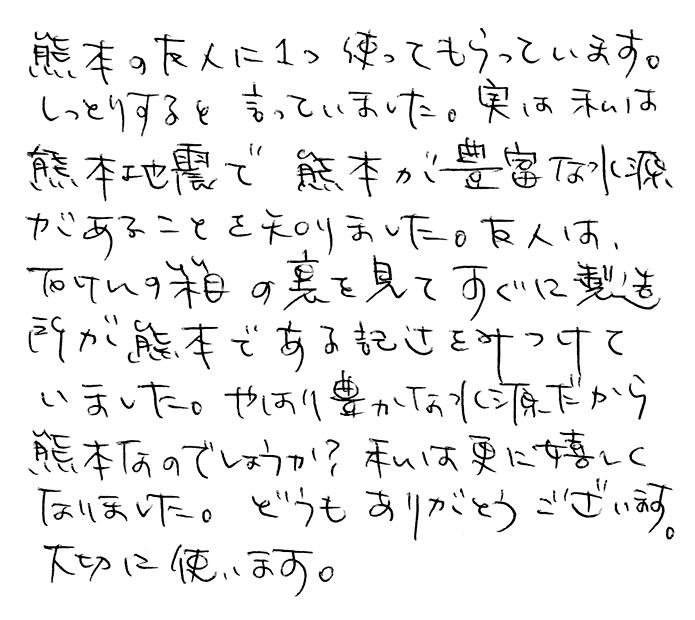 熊本の友人に1つ使ってもらっています。
しっとりすると言っていました。実は私は
熊本地震で熊本が豊富な水源
があることを知りました。友人は、
石けんの箱の裏を見てすぐに製造
所が熊本である記述をみつけて
いました。やはり豊かな水源だから
熊本なのでしょうか?私は更に嬉しく
なりました。どうもありがとうございます。
大切に使います。